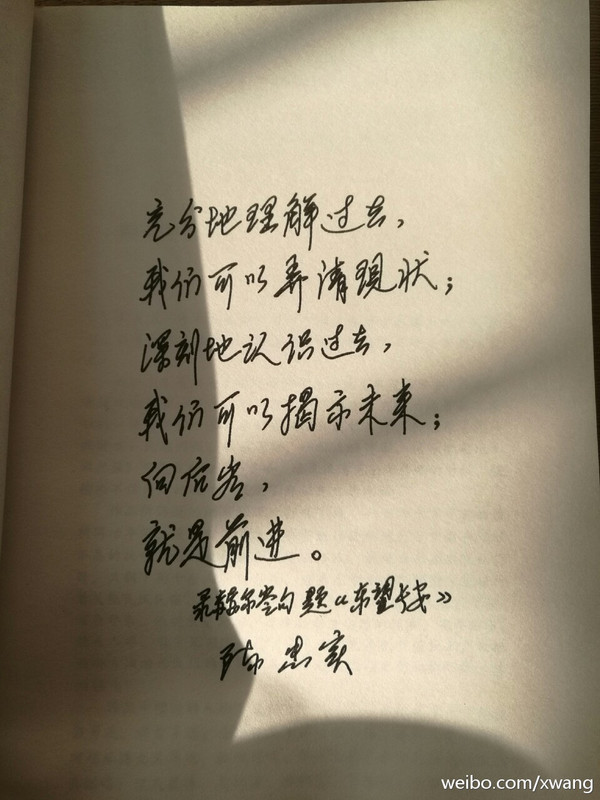 充分地理解过去，
我们可以弄清现状；
深刻地认识过去，
我们可以揭示未来；
向后看，
就是前进。
录赫尔岑句 题《东望长安》
陈忠实
weibo.com/xwang